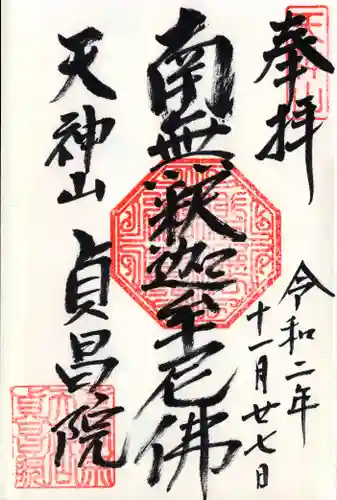 奉拝
令和二年
十一月廿七日
南無釈迦牟尼佛
天神山
貞昌院
天神山